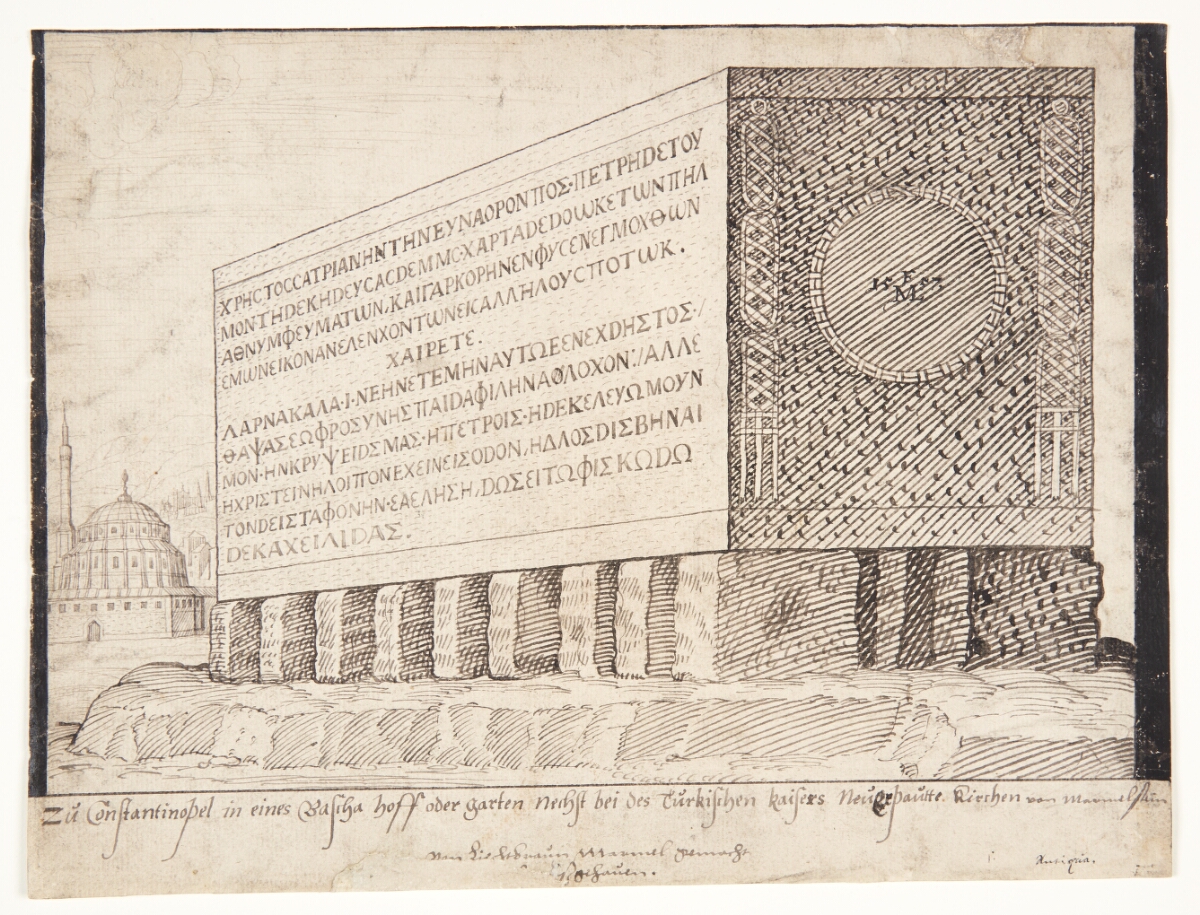 ΧΡΗϹΤΟϹϹΑΤΡΙΑΝΗΝΤΗΝΕΥΝΑΟΡΟΝΠΟΣ·ΠΕΤΡΗDΕΤΟΥ
ΜΟΝ·ΤΗDΕΚΗDΕΥϹΑϹDΕΜΜϹ·ΧΑΡΤΑDΕDΟѠΚΕΤѠΝΠΗΛ
ΑΘΝΥΜΦΕΥΜΑΤΙѠΝ,ΚΑΙΓΑΡΚΟΡΗΝΕΝΦΥϹΕΝΕΓΜΟΥΘѠΝ
ΕΜѠΝΕΙΚΟΝΑΝΕΛΕΝΧΟΝΤѠΝΕΙϹΑΛΛΗΛΟΥϹΠΟΤѠΚ.
ΧΑΙΡΕΤΕ.
ΛΑΡΝΑΚΑΛΑ·Ι·ΝΕΗΝΕΤΕΜΗΝΑΥΤΩΕΕΝΕΧDΗΣΤΟΣ·/
ΘΑΨΑΣΕΩΦΡΟΣΥΝΗΣΠΑΙDΑΦΙΛΗΝΑΘΛΟΧΟΝ:/ΑΛΛΕ
ΜΟΝ·ΗΝΚΡΥΨΕΙDΣΜΑΣ·ΗΠΕΤΡΟΙΣ·ΗDΕΚΕΛΕΥΩΜΟΥΝ
ΗΧΡΙΣΤΕΙΝΗΛΟΙΠΟΝΕΧΕΙΝΕΙΣΟDΟΝ,ΗΔΛΟΣDΙΣΒΗΝΑΙ
ΤΟΝDΕΙΣΤΑΦΟΝΗΝ·ΕΑΕΛΗΣΗ,DΩΣΕΙΤΩΦΙΣΚΩDΩ
DΕΚΑΧΕΙΛΙDΑΣ.
F
15 87
ML
Zu Constantinopel in eines Bascha hoff oder garten nechst bei des Türkischen kaisers Neuerpautte Kirchen von Marmelstun
Marmel gemacht
gehauen.
Antiqria.